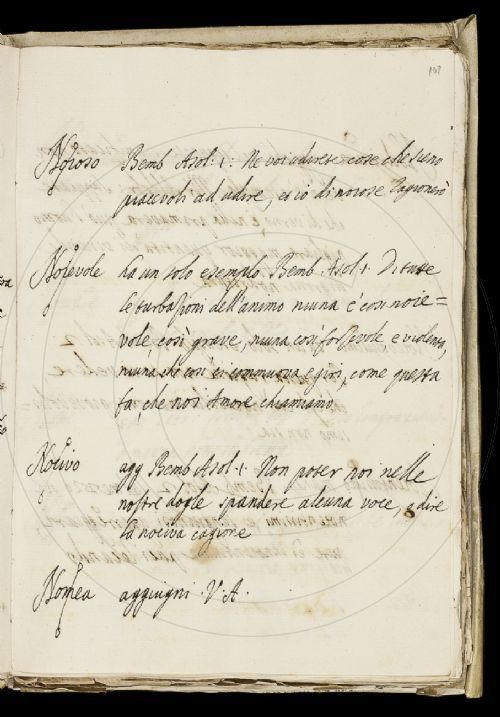 107
Noioso Bemb Asol: 1: Ne voi udirete cose che sieno
piacevoli ad udire, et io di noiose ragionerò
Noievole ha un solo esempio Bemb Asol. 1. Di tutte
le turbazioni dell'animo niuna è così noie=
vole, così grave, niuna così forzevole e violenta,
niuna che così ci commuova e giri, come questa
fa, che noi Amore chiamiamo
Nocivo agg Bemb Asol. 1. Non poter noi nelle
nostre dogle spandere alcuna voce, e dire
la nociva cagione
Nomea aggiugni V. A.